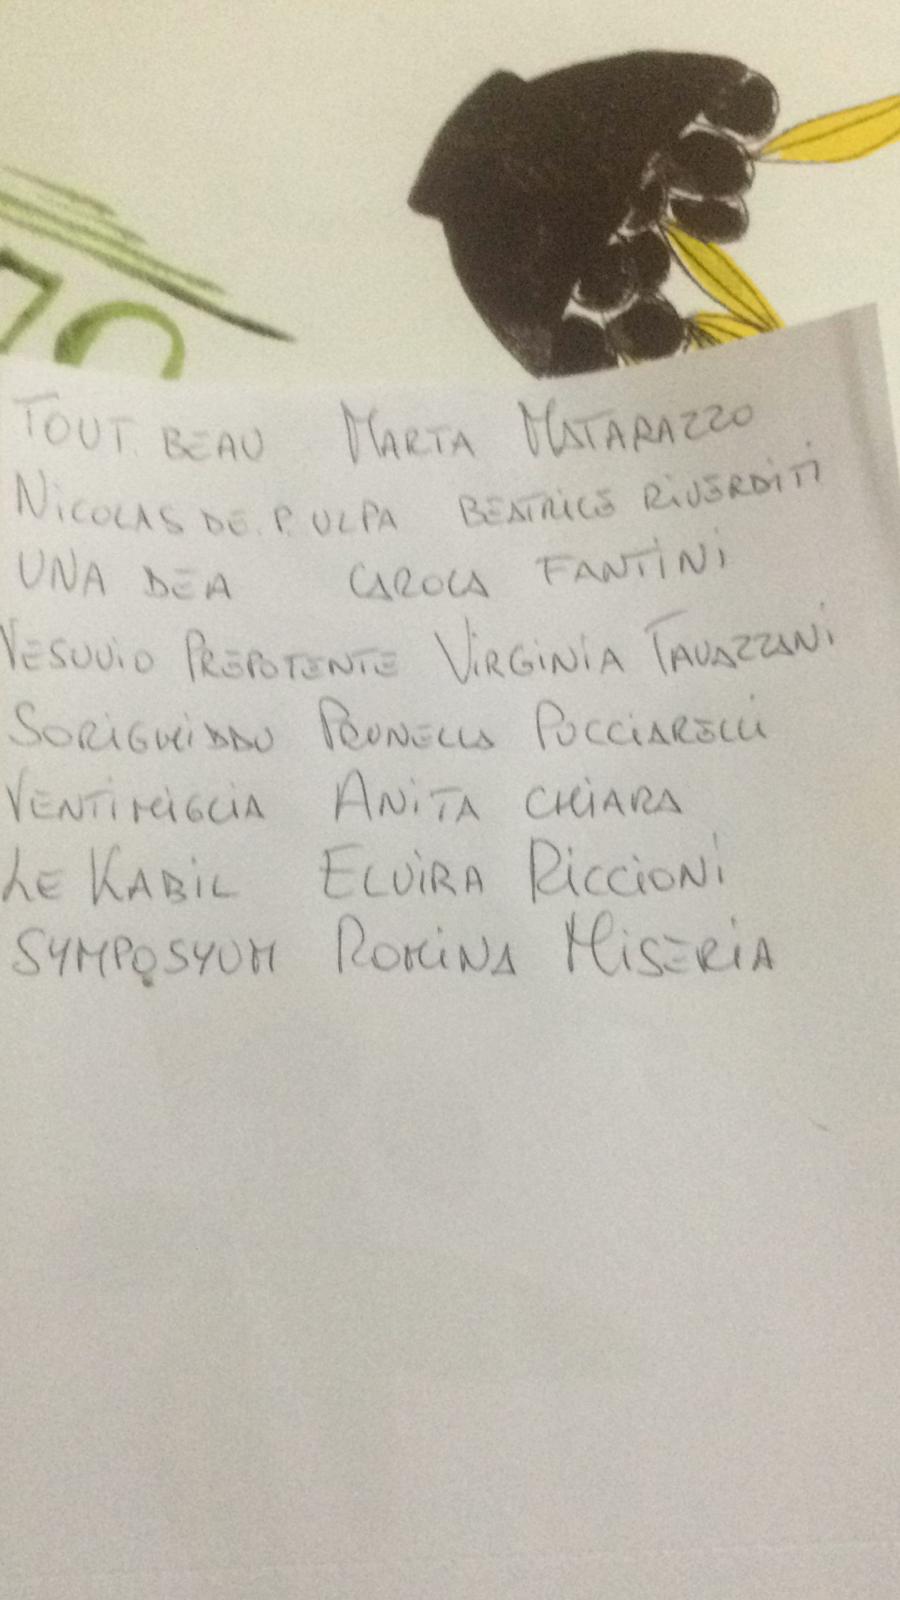 TOUT. BEAU MARTA MATARAZZO
NICOLAS DE. P. ULPA BEATRICE RIVERDITI
UNA DEA CAROLA FANTINI
VESUVIO PREPOTENTE VIRGINIA TAVAZZANI
SORIGHIDDU PRUNELLA PUCCIARELLI
VENTIMIGLIA ANITA CHIARA
LE KABIL ELVIRA RICCIONI
SYMPOSYUM ROMINA MISERIA